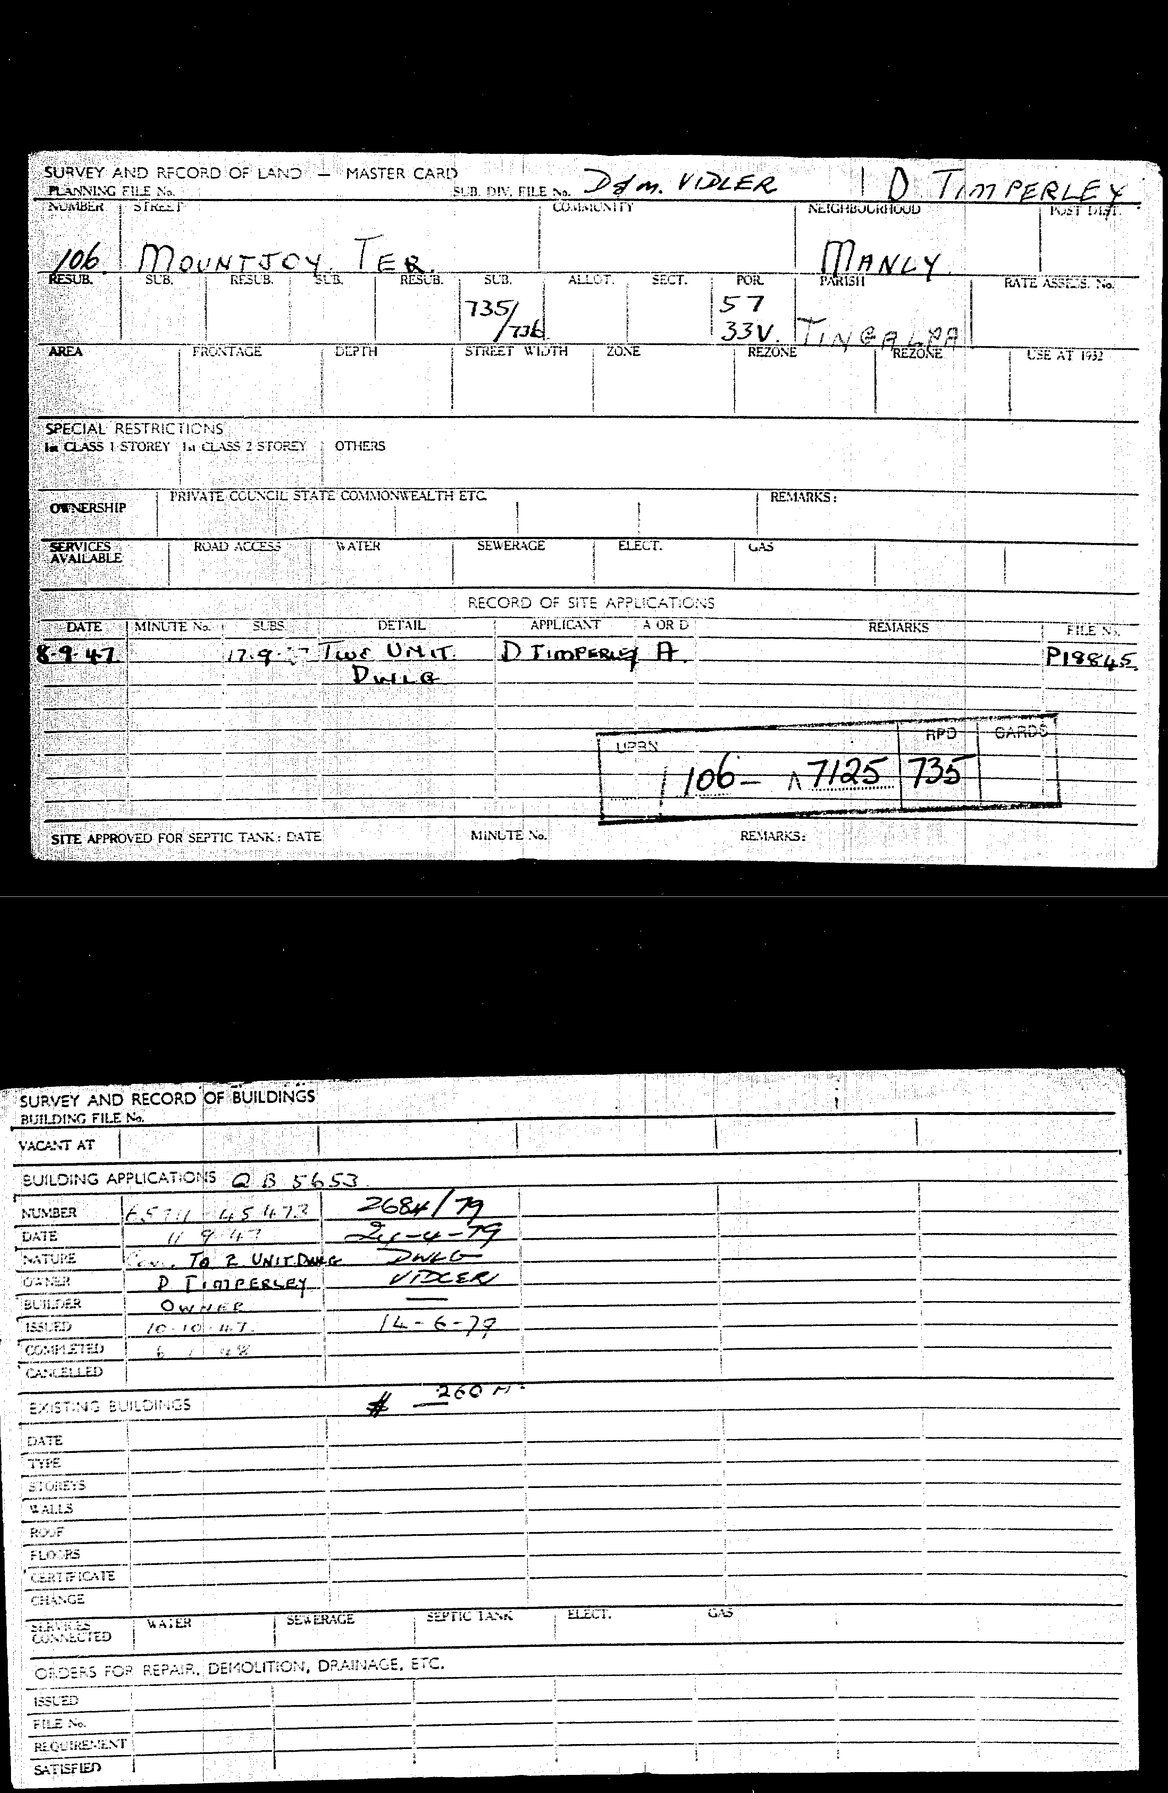 SURVEY AND RECORD OF LAND — MASTER CARD
PLANNING FILE No. SUB. DIV. FILE No. D & M. VIDLER D TIMPERLEY
NUMBER STREET COMMUNITY NEIGHBOURHOOD POST DIST.
106 MOUNTJOY TER. MANLY
RESUB. SUB. RESUB. SUB. RESUB. SUB. ALLOT. SECT. POR. PARISH RATE ASSESS. No.
735/ 57
736 33V. TINGALPA
AREA FRONTAGE DEPTH STREET WIDTH ZONE REZONE REZONE USE AT 1932
SPECIAL RESTRICTIONS
1st CLASS 1 STOREY 1st CLASS 2 STOREY OTHERS
OWNERSHIP PRIVATE COUNCIL STATE COMMONWEALTH ETC. REMARKS:
SERVICES AVAILABLE ROAD ACCESS WATER SEWERAGE ELECT. GAS
RECORD OF SITE APPLICATIONS
DATE MINUTE No. SUBS. DETAIL APPLICANT A OR D REMARKS FILE No.
8-9-47 17-9- TWO UNIT. D TIMPERLEY A. P19845
DWLG
UPRN RPD CARDS
106- 7125 735
SITE APPROVED FOR SEPTIC TANK: DATE MINUTE No. REMARKS:
SURVEY AND RECORD OF BUILDINGS
BUILDING FILE No.
VACANT AT
BUILDING APPLICATIONS QB 5653
NUMBER 45473 2684/79
DATE 11 9 47 24-4-79
NATURE TO 2 UNIT DWLG DWLG
OWNER D TIMPERLEY VIDLER
BUILDER OWNER —
ISSUED 10-10-47. 14-6-79
COMPLETED 6 1 48
CANCELLED
EXISTING BUILDINGS # 260 M²
DATE
TYPE
STOREYS
WALLS
ROOF
FLOORS
CERTIFICATE
CHANGE
SERVICES CONNECTED WATER SEWERAGE SEPTIC TANK ELECT. GAS
ORDERS FOR REPAIR, DEMOLITION, DRAINAGE, ETC.
ISSUED
FILE No.
REQUIREMENT
SATISFIED